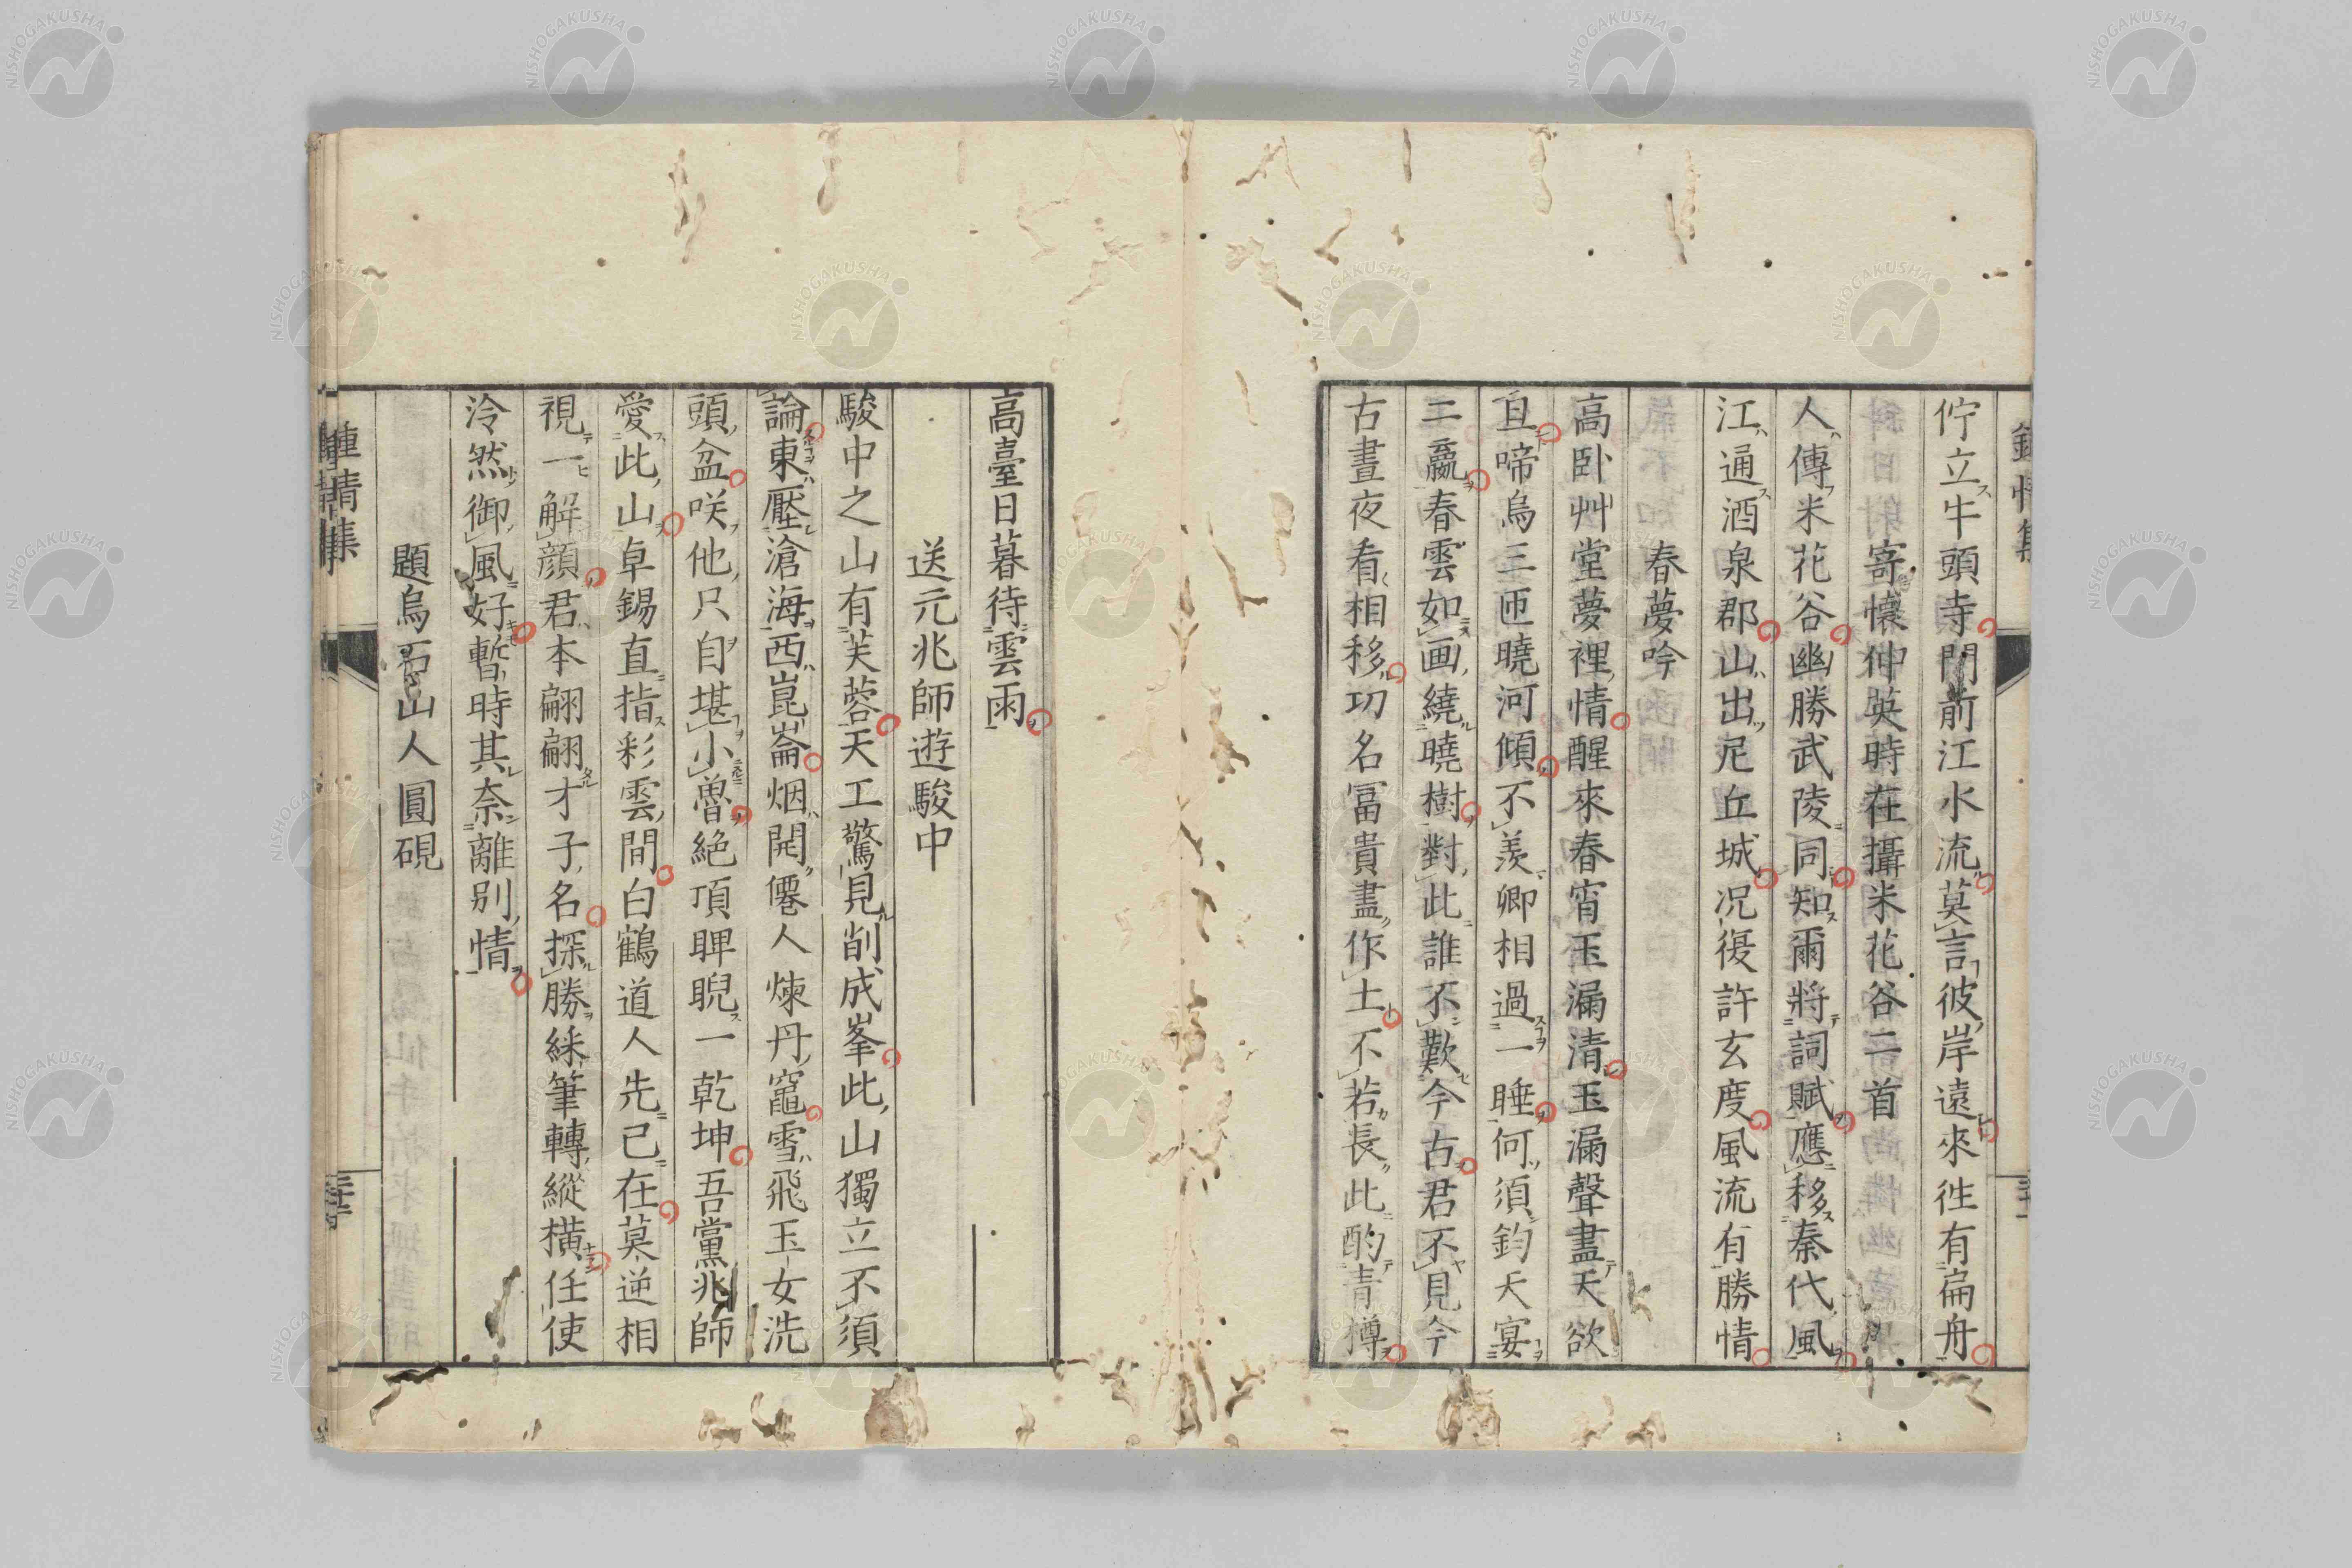 佇立牛頭寺門前江水流莫言彼岸遠來往有扁舟
寄懷仲英時在攝米花谷二首
人傳米花谷幽勝武陵同知爾將詞賦應移秦代風
江通酒泉郡山出尼丘城况復許玄度風流有勝情
春夢吟
高臥艸堂夢裡情醒來春宵玉漏清玉漏聲盡天欲
且啼烏三匝曉河傾不羨卿相過一睡何須鈞天宴
二嬴春雲如画繞曉樹對此誰不歎今古君不見今
古晝夜看相移功名冨貴盡作土不若長此酌青樽
高臺日暮待雲雨
送元兆師遊駿中
駿中之山有芙蓉天工驚見削成峯此山獨立不須
論東壓滄海西崑崙烟開僊人煉丹竈雪飛玉女洗
頭盆咲他只自堪小魯絕頂睥睨一乾坤吾黨兆師
愛此山卓錫直指彩雲間白鶴道人先已在莫逆相
視一解顔君本翩翩才子名探勝綵筆轉縱橫任使
泠然御風好暫時其奈離別情
題烏石山人圓硯
鍾情集
NISHOGAKUSHA